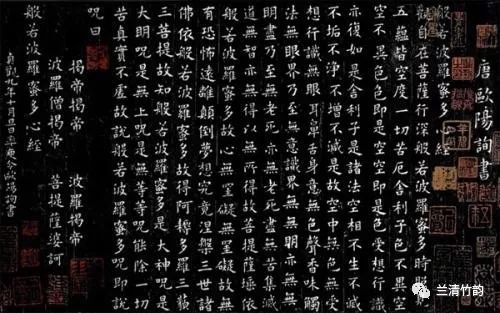 唐歐陽詢書
般若波羅蜜多心經
觀自在菩薩行深般若波羅蜜多時照見
五蘊皆空度一切苦厄舍利子色不異空
空不異色色即是空空即是色受想行識
亦復如是舍利子是諸法空相不生不滅
不垢不淨不增不減是故空中無色無受
想行識無眼耳鼻舌身意無色聲香味觸
法無眼界乃至無意識界無無明亦無無
明盡乃至無老死亦無老死盡無苦集滅
道無智亦無得以無所得故菩提薩埵依
般若波羅蜜多故心無罣礙無罣礙故無
有恐怖遠離顛倒夢想究竟涅槃三世諸
佛依般若波羅蜜多故得阿耨多羅三藐
三菩提故知般若波羅蜜多是大神呪是
大明呪是無上呪是無等等呪能除一切
苦真實不虛故說般若波羅蜜多呪即說
呪曰
揭帝揭帝 波羅揭帝
波羅僧揭帝 菩提薩婆訶
般若波羅蜜多心經
貞觀九年十月旦日率更令歐陽詢書
兰清竹韵